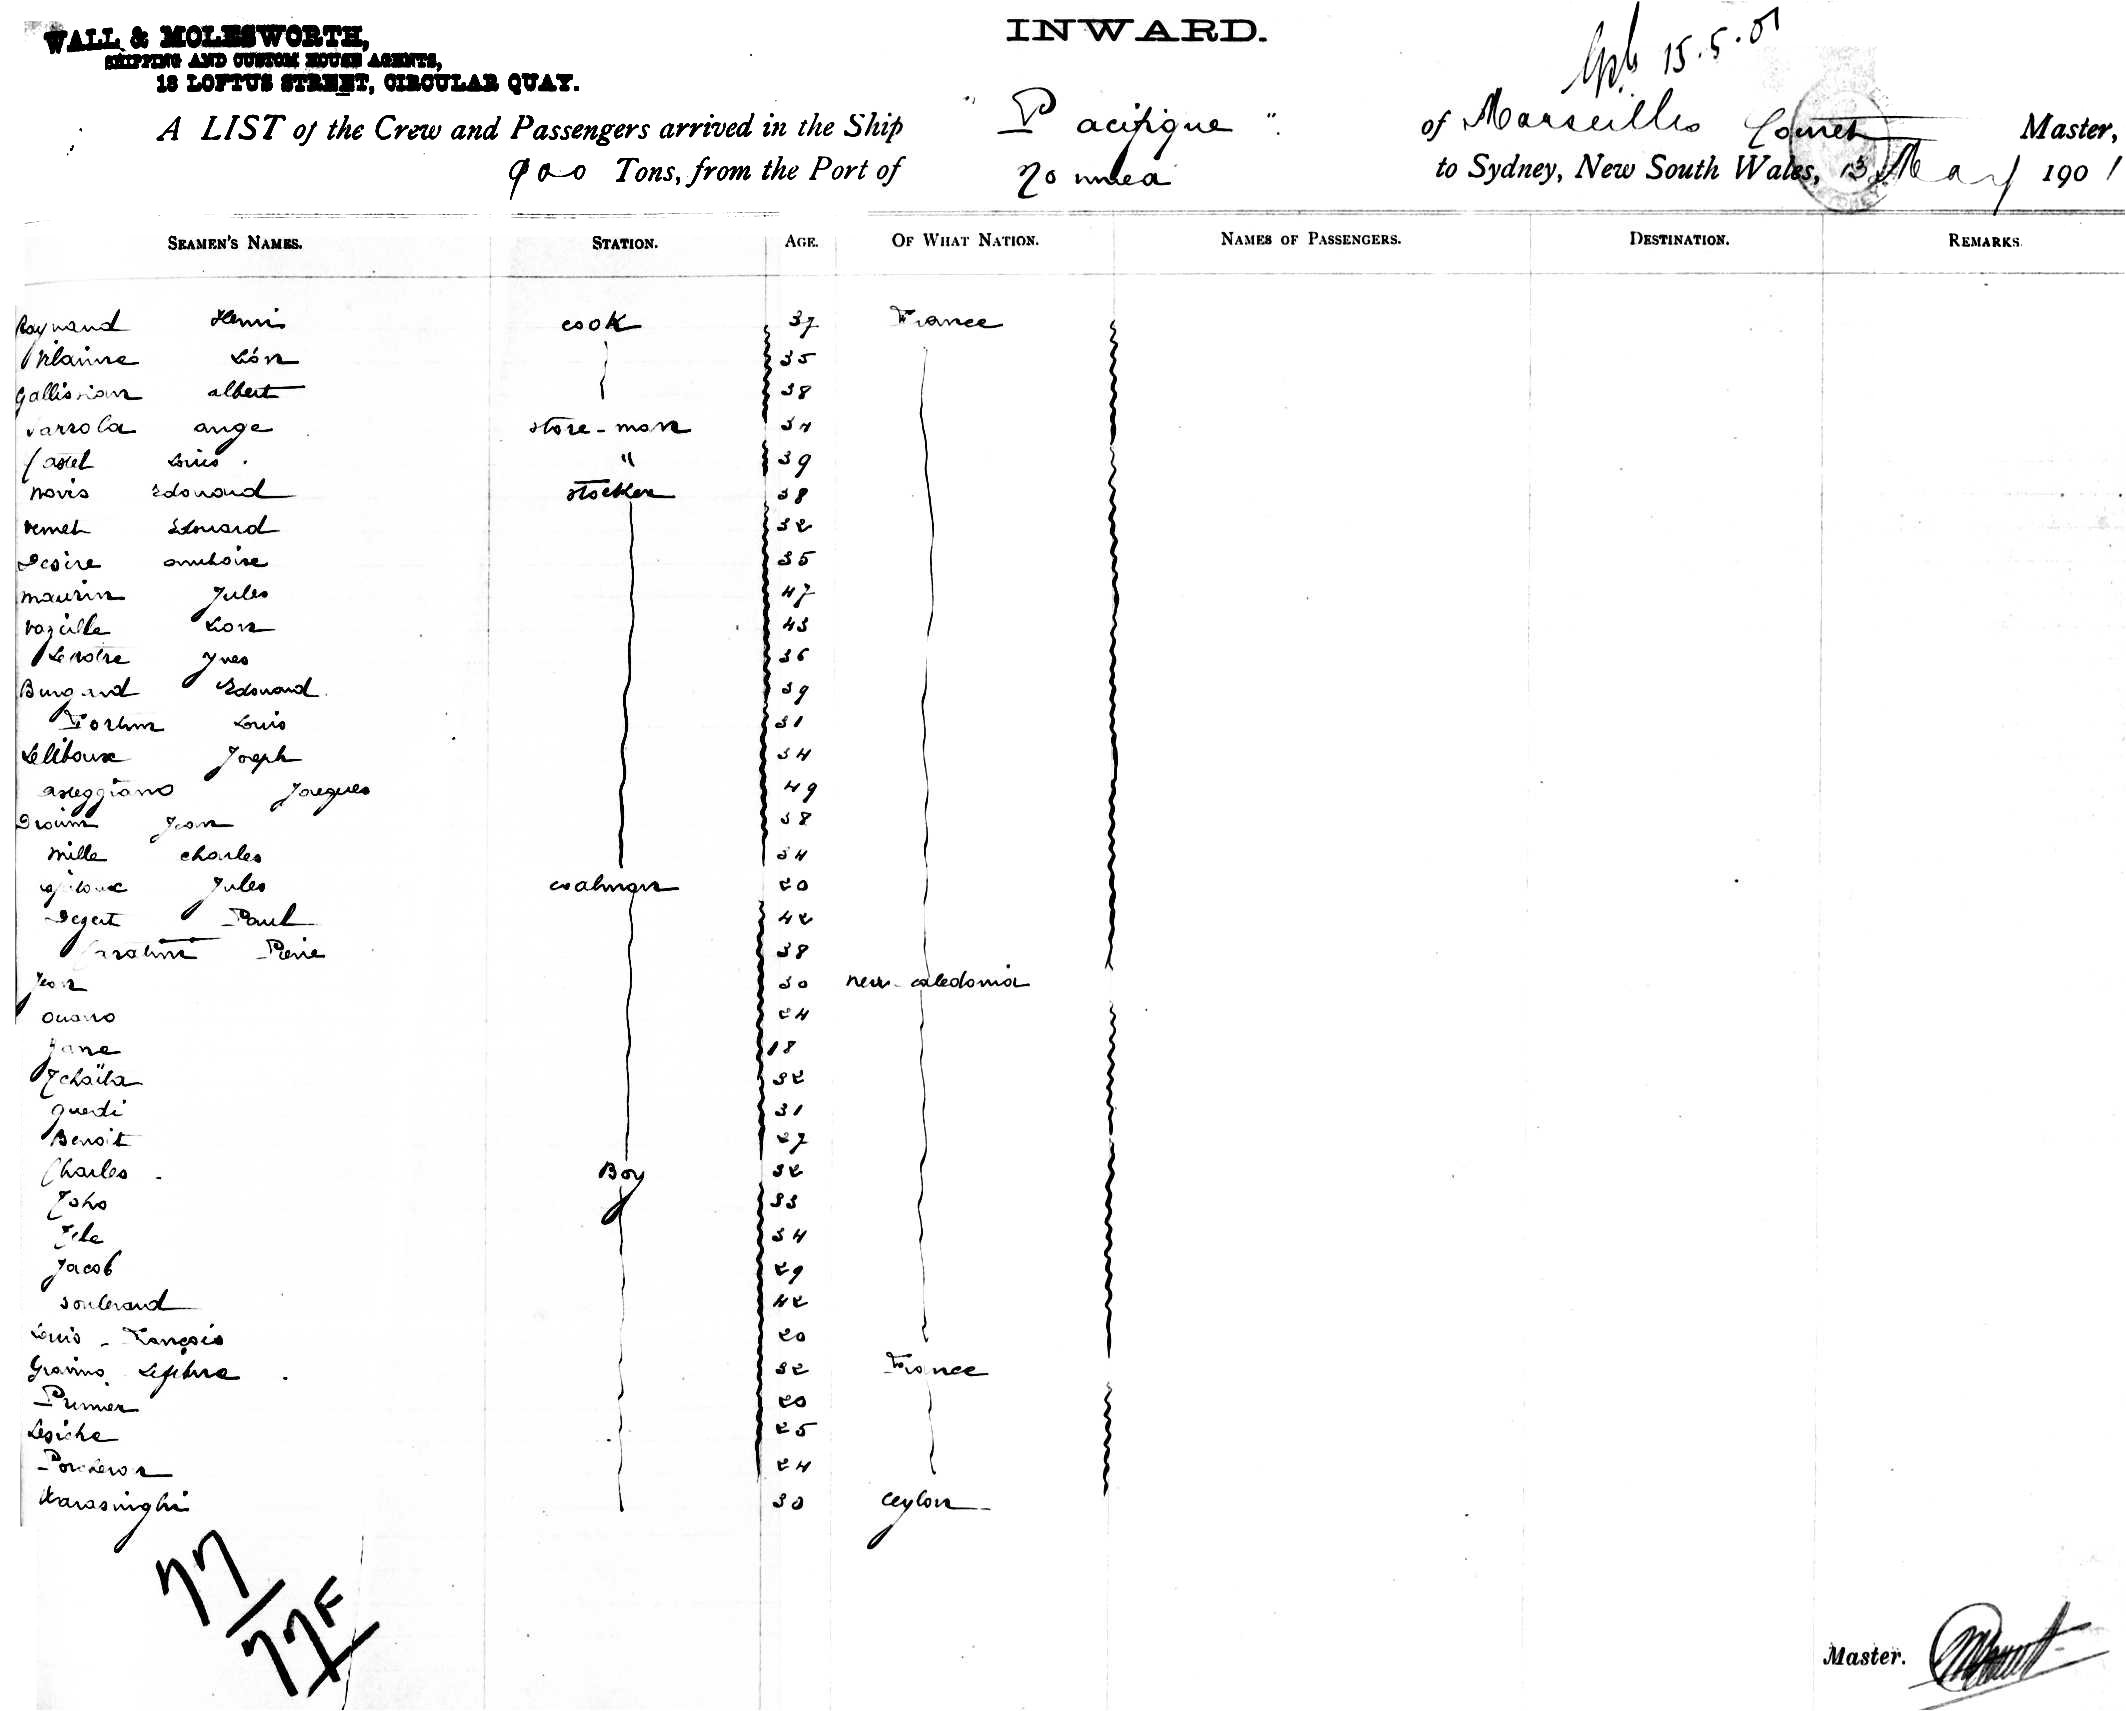 WALL & MOLESWORTH,
SHIPPING AND CUSTOM HOUSE AGENTS,
18 LOFTUS STREET, CIRCULAR QUAY.
INWARD.
15.5.01
A LIST of the Crew and Passengers arrived in the Ship "Pacifique". of Marseilles Master,
900 Tons, from the Port of Noumea to Sydney, New South Wales, 13 May 1901
SEAMEN'S NAMES. STATION. AGE. OF WHAT NATION. NAMES OF PASSENGERS. DESTINATION. REMARKS.
Raynaud Henri cook 37 France
Vilaine Léon 35
Gallisian albert 38
Sarrola ange store-man 34
Castel Louis. " 39
novis Edouard stocker 38
Vernet Edouard 32
Desire ambroise 35
maurin Jules 47
vazeille Leon 43
Lenotre Yves 36
Burgand Edouard. 39
Fortun Louis 31
Leliboux Joseph 34
asteggiano Jacques 49
Drouin Jean 38
mille charles 34
Jules coalman 20
Paul 42
Pierre 38
Jean 30 new-caledonia
ouano 24
Jane 18
Tchaïta 32
querdi 31
Benoit 27
Charles. Boy 32
Toho 33
34
Jacob 29
42
Louis - François 20
Lefebvre. 32 France
Primier 20
25
24
30 Ceylon
77
77F
Master.